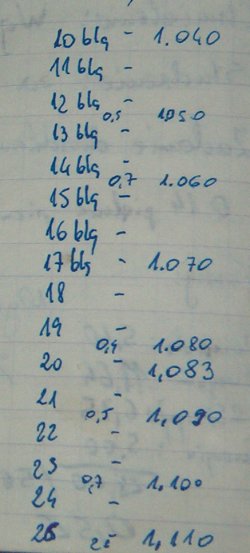 10 blg - 1.040
11 blg -
12 blg -
0,5 1050
13 blg -
14 blg -
0,7 1.060
15 blg -
16 blg -
17 blg - 1.070
18 -
19 -
0,4 1.080
20 - 1,083
21 -
0,5 1,090
22 -
23 -
0,7 1,100
24 -
25 1,110